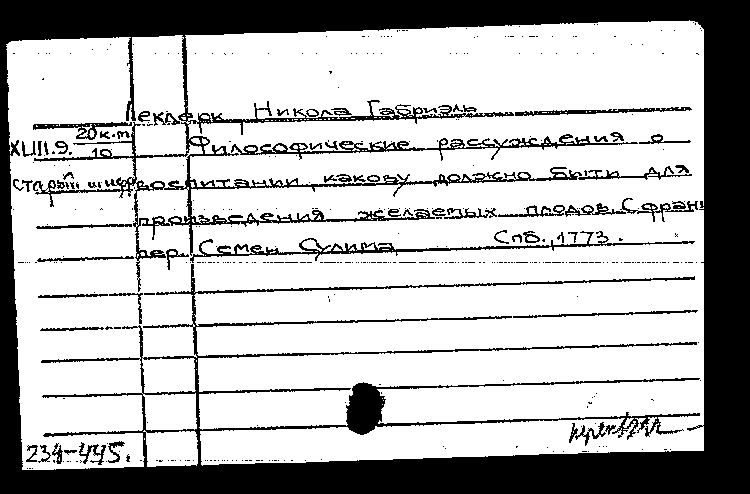 Леклерк, Никола Габриэль
XLIII.9. 20 к.т
10
Философические рассуждения о
старый шифр воспитании, какову должно быти для
произведения желаемых плодов. С франц
пер. Семен Сулима Спб., 1773.
234-445.